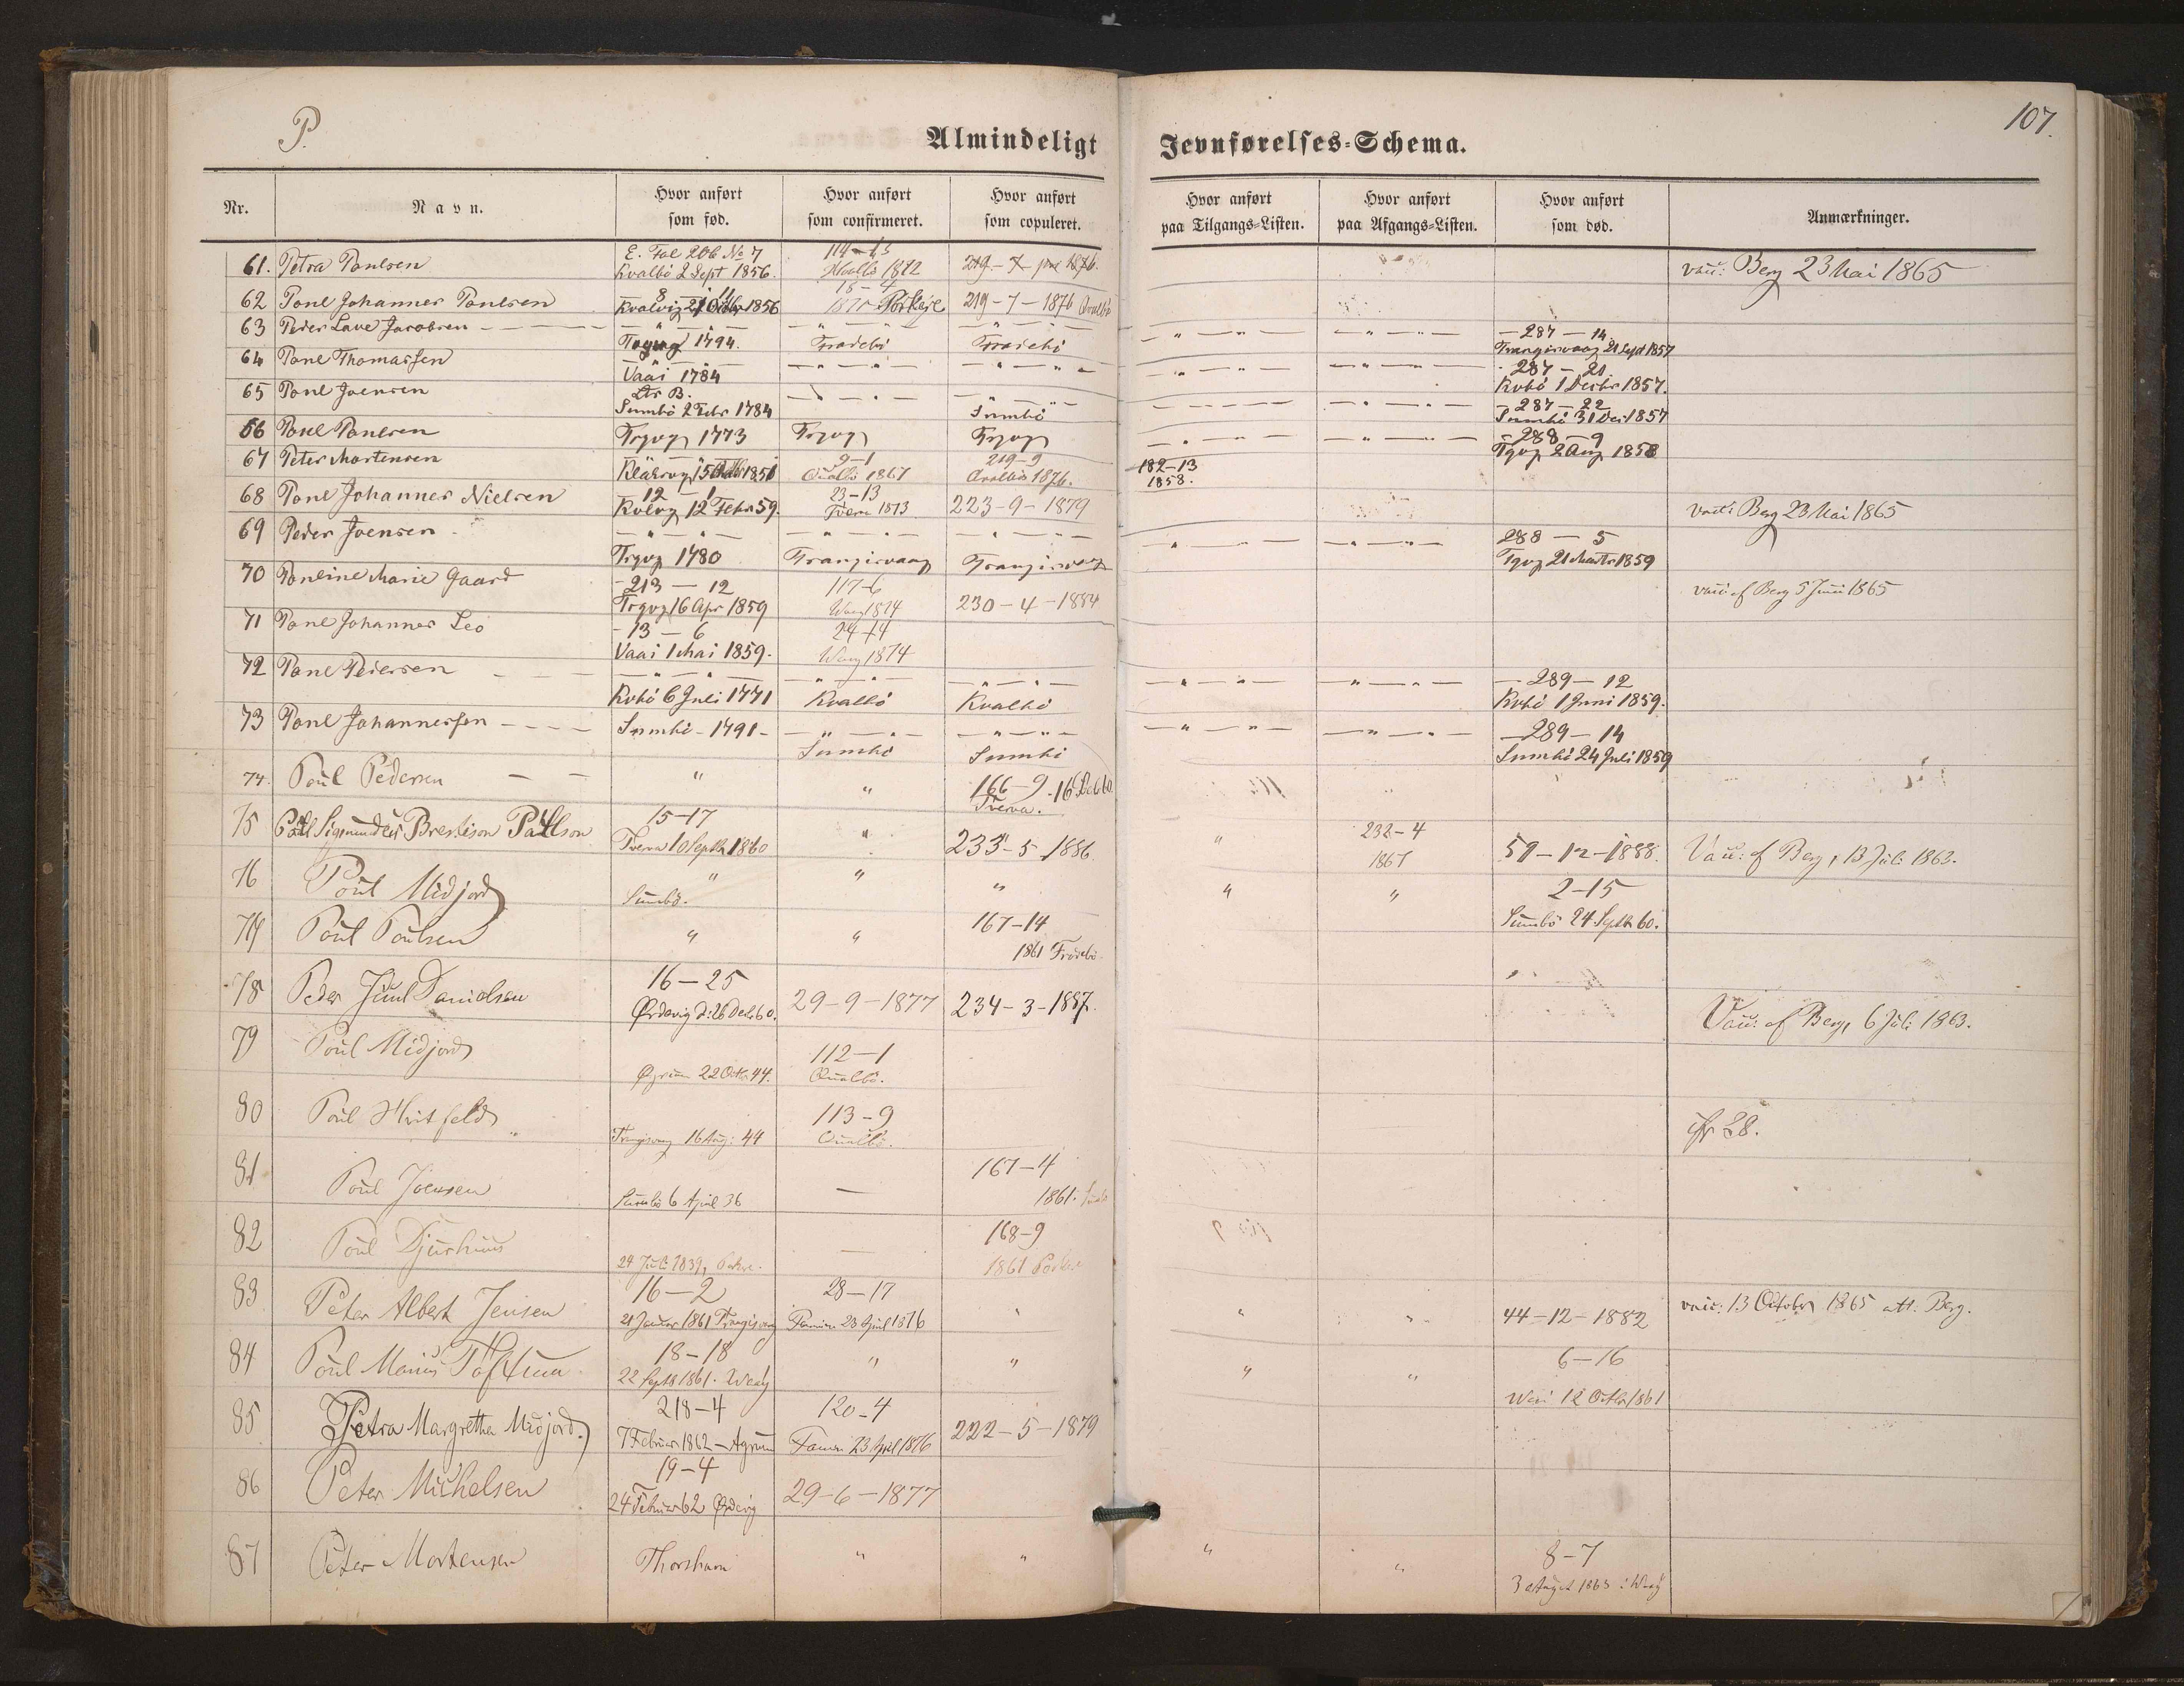 P.
107.
Almindeligt Jevnførelses-Schema.
Nr. Navn. Hvor anført som fød. Hvor anført som confirmeret. Hvor anført som copuleret. Hvor anført paa Tilgangs-Listen. Hvor anført paa Afgangs-Listen. Hvor anført som død. Anmærkninger.
E. Fol 206 No 7 114-15
61. Petra Poulsen Kvalbö 2 Sept 1856. 1872 219-7 1876. vacc: Berg 23 Mai 1865
8 11 18-4
62 Poul Johannes Poulsen Kvalvig 1856 219-7-1876
63 Peder Lave Jacobsen 287-14
1794. Frodebö Frodebö Trangisvaag 21 Sept 1857
64 Poul Thomassen 287-21
Vaai 1784 Kvbö 1 Decbr 1857.
65 Poul Joensen Ltr B. 287-22
Sumbö 2 Febr 1784 Sumbö Sumbö 31 Dec 1857
66 Poul Poulsen Trgvg 1773 Trgvg Trgvg 288-9
Tgvg 2 Aug 1858
67 Peter Mortensen 9-1 219-9 182-13
Qualbö 1867 Qualbö 1876. 1858.
68 Poul Johannes Nielsen 12 1 23-13
Kvlvg 12 Febr 59. Tveraa 1873 223-9-1879 vacc: Berg 23 Mai 1865
69 Peder Joensen 288-5
Trgvg 1780 Trangisvaag Trangisvaag Tgvg 21 Marts 1859
70 Pouline Marie Gaard 213-12 117-6
Trgvg 16 Apr 1859 Waag 1874 230-4-1884 vacc: af Berg 5 Juni 1865
71 Poul Johannes Leo 13-6 24-14
Vaai 1 Mai 1859. Waag 1874
72 Poul Pedersen 289-12
Kvbö 6 Juli 1771 Kvalbö Kvalbö Kvbö 1 Juni 1859.
73 Poul Johannessen Sumbö-1791- 289-14
Sumbö Sumbö Sumbö 24 Juli 1859
74. Poul Pedersen " " 166-9
Tveraa.
75 15-17 " 232-4
Tveraa 10 Septb 1860 233-5-1886. 1867 51-12-1888. Vacc: af Berg, 13 Juli 1863.
76 Poul Midjord " " " " " 2-15
Sumbö. Sumbö 24 Septb 60.
77 Poul Poulsen " " 167-14
1861 Frodebö
78 Peder Juul Danielsen 16-25
Ørdevig d: 26 Decb. 60. 29-9-1877 234-3-1887. Vacc: af Berg, 6 Juli 1863.
79 Poul Midjord 112-1
22 Octb 44. Qualbö.
80 Poul Hvitfeld 113-9
Trangisvaag 16 Aug: 44 Qualbö. cfr 28.
81 Poul Joensen 167-4
Sumbö 6 April 36 — 1861.
82 Poul Djurhuus 168-9
24 Juli 1839, — 1861
83 Peter Albert Jensen 16-2 28-17
21 Januar 1861 Trangisvaag 23 April 1876 " " " 44-12-1882 vacc: 13 October 1865 att. Berg.
84 Poul Marius 18-18 " " " " 6-16
22 Septb 1861. Waag 12 Octbr 1861
85 Petra Margretha Midjord. 218-4 120-4
7 Februar 1862 23 April 1876 222-5-1879
86 Peter Michelsen 19-4
24 Februar 62 Ørdevig 29-6-1877
87 Peter Mortensen Thorshavn " " " " 8-7
3 August 1863 i Waag